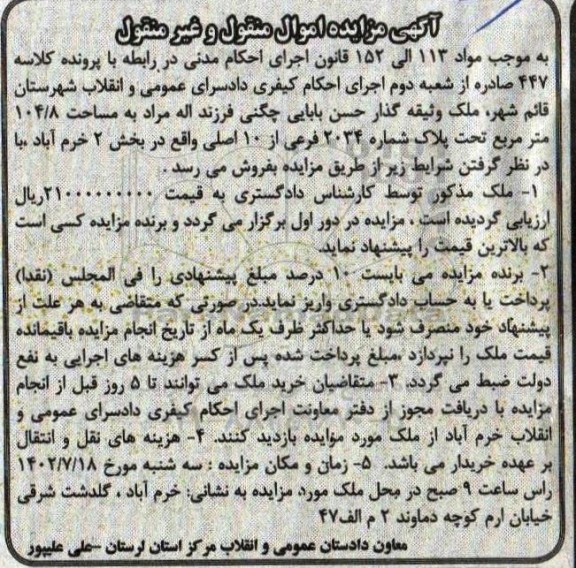 آگهی مزایده اموال منقول و غیر منقول
به موجب مواد ۱۱۳ الی ۱۵۲ قانون اجرای احکام مدنی در رابطه با پرونده کلاسه
۴۴۷ صادره از شعبه دوم اجرای احکام کیفری دادسرای عمومی و انقلاب شهرستان
قائم شهر، ملک وثیقه گذار حسن بابایی چگنی فرزند اله مراد به مساحت ۱۰۴/۸
متر مربع تحت پلاک شماره ۲۰۳۴ فرعی از ۱۰ اصلی واقع در بخش ۲ خرم آباد ،با
در نظر گرفتن شرایط زیر از طریق مزایده بفروش می رسد .
۱- ملک مذکور توسط کارشناس دادگستری به قیمت ۲۱۰۰۰۰۰۰۰۰۰ریال
ارزیابی گردیده است ، مزایده در دور اول برگزار می گردد و برنده مزایده کسی است
که بالاترین قیمت را پیشنهاد نماید.
۲- برنده مزایده می بایست ۱۰ درصد مبلغ پیشنهادی را فی المجلس (نقدا)
پرداخت یا به حساب دادگستری واریز نماید.در صورتی که متقاضی به هر علت از
پیشنهاد خود منصرف شود یا حداکثر ظرف یک ماه از تاریخ انجام مزایده باقیمانده
قیمت ملک را نپردازد ،مبلغ پرداخت شده پس از کسر هزینه های اجرایی به نفع
دولت ضبط می گردد. ۳- متقاضیان خرید ملک می توانند تا ۵ روز قبل از انجام
مزایده با دریافت مجوز از دفتر معاونت اجرای احکام کیفری دادسرای عمومی و
انقلاب خرم آباد از ملک مورد مزایده بازدید کنند. ۴- هزینه های نقل و انتقال
بر عهده خریدار می باشد. ۵- زمان و مکان مزایده : سه شنبه مورخ ۱۴۰۲/۷/۱۸
راس ساعت ۹ صبح در محل ملک مورد مزایده به نشانی: خرم آباد ، گلدشت شرقی
خیابان ارم کوچه دماوند ۲ م الف۴۷
معاون دادستان عمومی و انقلاب مرکز استان لرستان –علی علیپور